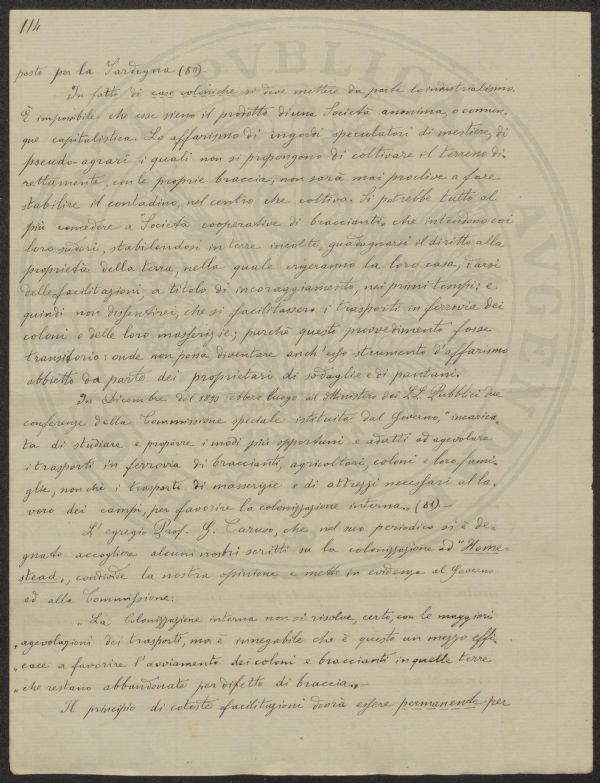 114
posto per la Sardegna (80).
In fatto di case coloniche si deve mettere da parte lo industrialismo.
È impossibile che esse sieno il prodotto di una Società anonima, o comun-
que capitalistica. Lo affarismo di ingordi speculatori di mestiere, di
pseudo-agrari i quali non si propongono di coltivare il terreno di-
rettamente, con le proprie braccia, non sarà mai proclive a fare
stabilire il contadino, nel centro che coltiva. Si potrebbe tutto al
più concedere a Società cooperative di braccianti, che intendono coi
loro sudori, stabilendosi in terre incolte, guadagnarsi il diritto alla
proprietà della terra, nella quale erigeranno la loro casa, darsi
delle facilitazioni, a titolo di incoraggiamento, nei primi tempi; e
quindi non dissentirei, che si facilitassero i trasporti in ferrovia dei
coloni e delle loro masserizie; purchè questo provvedimento fosse
transitorio: onde non possa diventare anch'esso strumento d'affarismo
abbietto da parte dei proprietari di sodaglie e di pantani.
In Dicembre del 1890 ebbero luogo al Ministero dei LL. Pubblici due
conferenze della Commissione speciale istituita dal Governo, "incarica-
ta di studiare e proporre i modi più opportuni e adatti ad agevolare
i trasporti in ferrovia di braccianti, agricoltori, coloni e loro fami-
glie, non chè i trasporti di masserizie e di attrezzi necessari al la-
voro dei campi, per favorire la colonizzazione interna" (81).—
L'egregio Prof. G. Caruso, che nel suo periodico si è de-
gnato accogliere alcuni nostri scritti su la colonizzazione ed "Home-
stead", condivide la nostra opinione e mette in evidenza al Governo
ed alla Commissione:
"La Colonizzazione interna non si risolve, certo, con le maggiori
"agevolazioni dei trasporti, ma è innegabile che è questo un mezzo effi-
"cace a favorire l'avviamento dei coloni e braccianti in quelle terre
"che restano abbandonate per difetto di braccia"—
Il principio di coteste facilitazioni dovrà essere permanende per